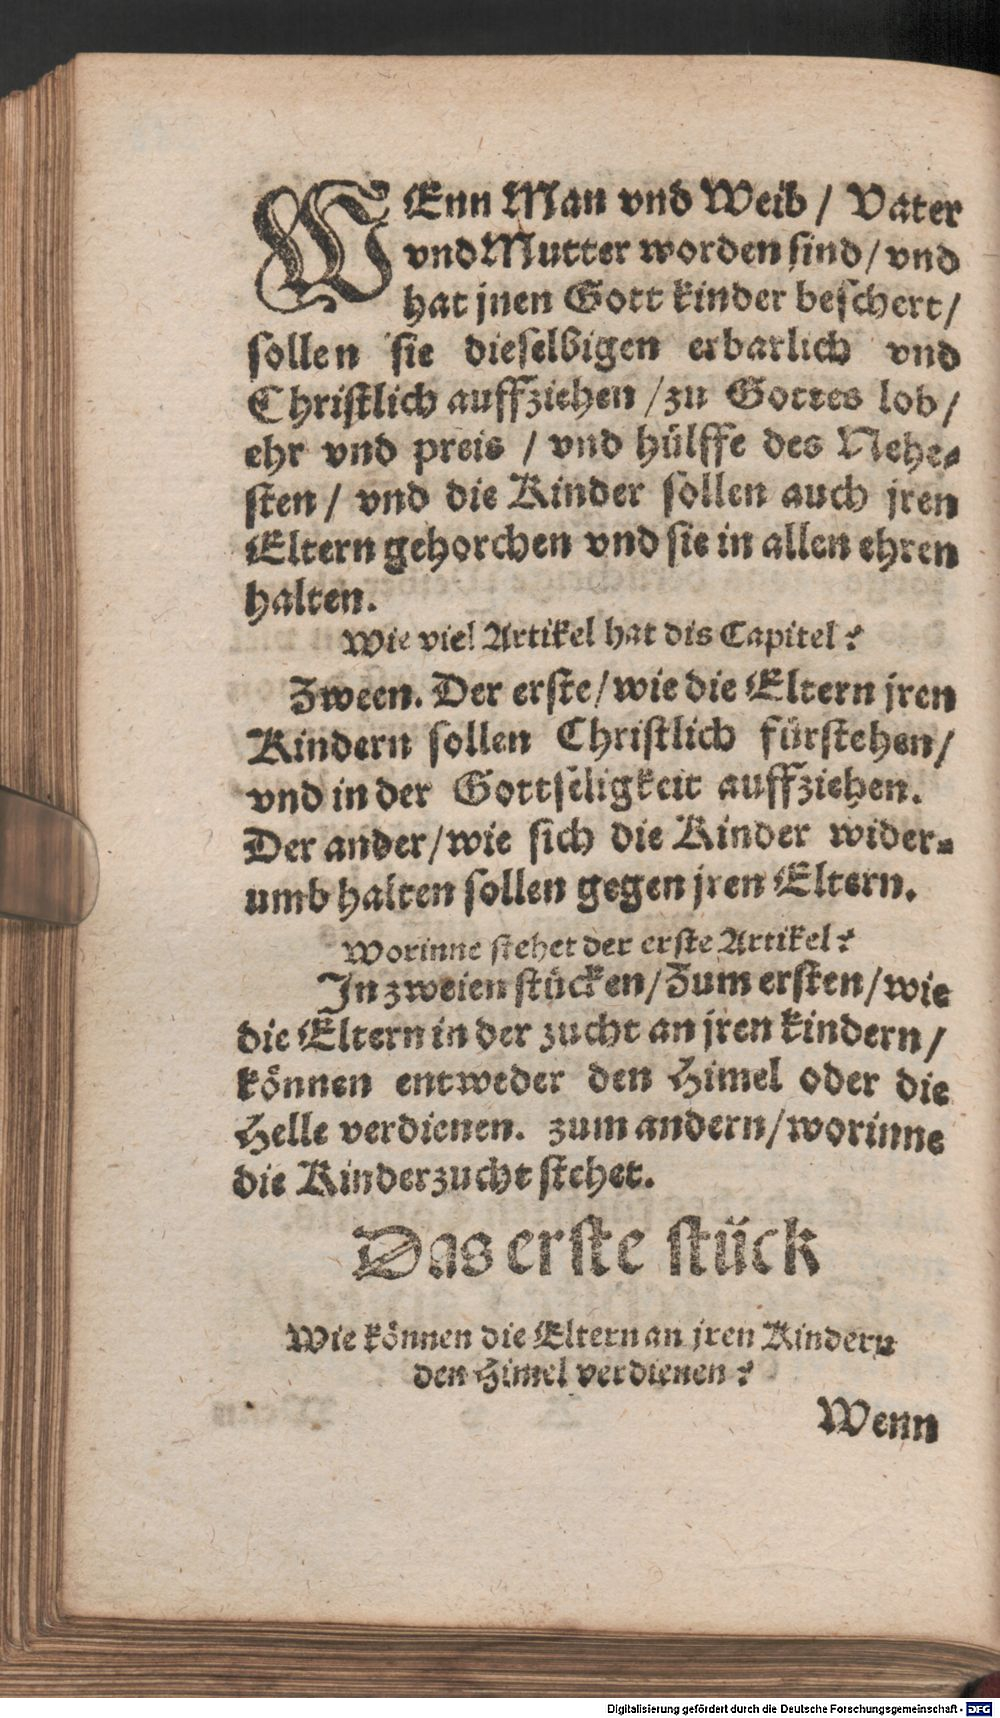 WEnn Man vnd Weib / Vater
vnd Mutter worden sind / vnd
hat jnen Gott kinder beschert /
sollen sie dieselbigen erbarlich vnd
Christlich auffziehen / zu Gottes lob /
ehr vnd preis / vnd hülffe des Nehe-
sten / vnd die Kinder sollen auch jren
Eltern gehorchen vnd sie in allen ehren
halten.
Wie viel Artikel hat dis Capitel?
Zween. Der erste / wie die Eltern jren
Kindern sollen Christlich fürstehen /
vnd in der Gottseligkeit auffziehen.
Der ander / wie sich die Kinder wider-
umb halten sollen gegen jren Eltern.
Worinne stehet der erste Artikel?
In zweien stücken / Zum ersten / wie
die Eltern in der zucht an jren kindern /
können entweder den Himel oder die
Helle verdienen. zum andern / worinne
die Kinderzucht stehet.
Das erste stück
Wie können die Eltern an jren Kindern
den Himel verdienen?
Wenn
Digitalisierung gefördert durch die Deutsche Forschungsgemeinschaft - DFG